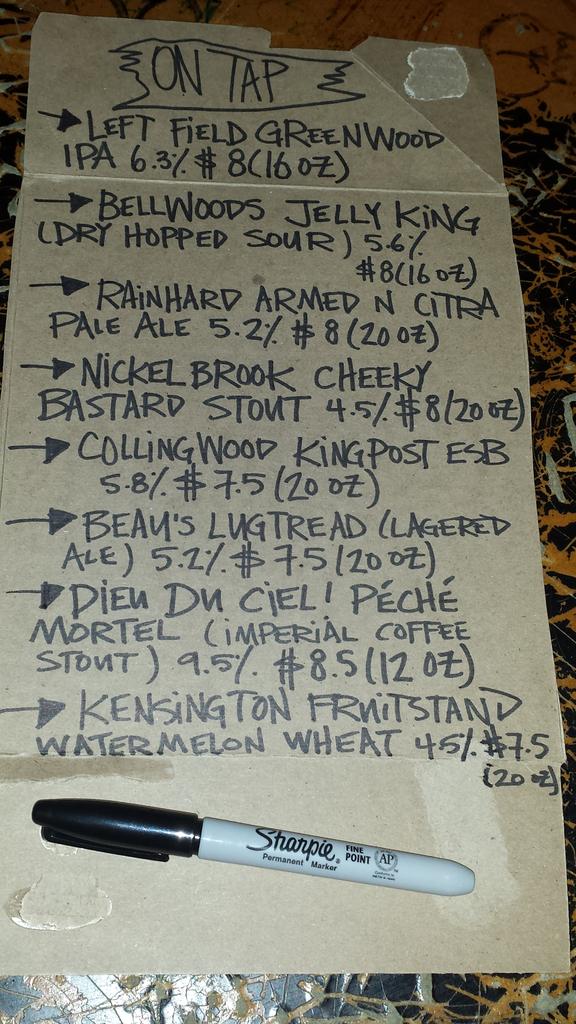 ON TAP
LEFT FIELD GREENWOOD
IPA 6.3% $8(16 OZ)
BELLWOODS JELLY KING
(DRY HOPPED SOUR) 5.6%
$8(16 OZ)
RAINHARD ARMED N CITRA
PALE ALE 5.2% $8(20 OZ)
NICKELBROOK CHEEKY
BASTARD STOUT 4.5% $8(20 OZ)
COLLINGWOOD KINGPOST ESB
5.8% $7.5 (20 OZ)
BEAU'S LUGTREAD (LAGERED
ALE) 5.2% $7.5 (20 OZ)
DIEU DU CIEL! PÉCHÉ
MORTEL (IMPERIAL COFFEE
STOUT) 9.5% $8.5 (12 OZ)
KENSINGTON FRUITSTAND
WATERMELON WHEAT 4.5% $7.5
(20 OZ)
Sharpie. FINE POINT AP
Permanent Marker